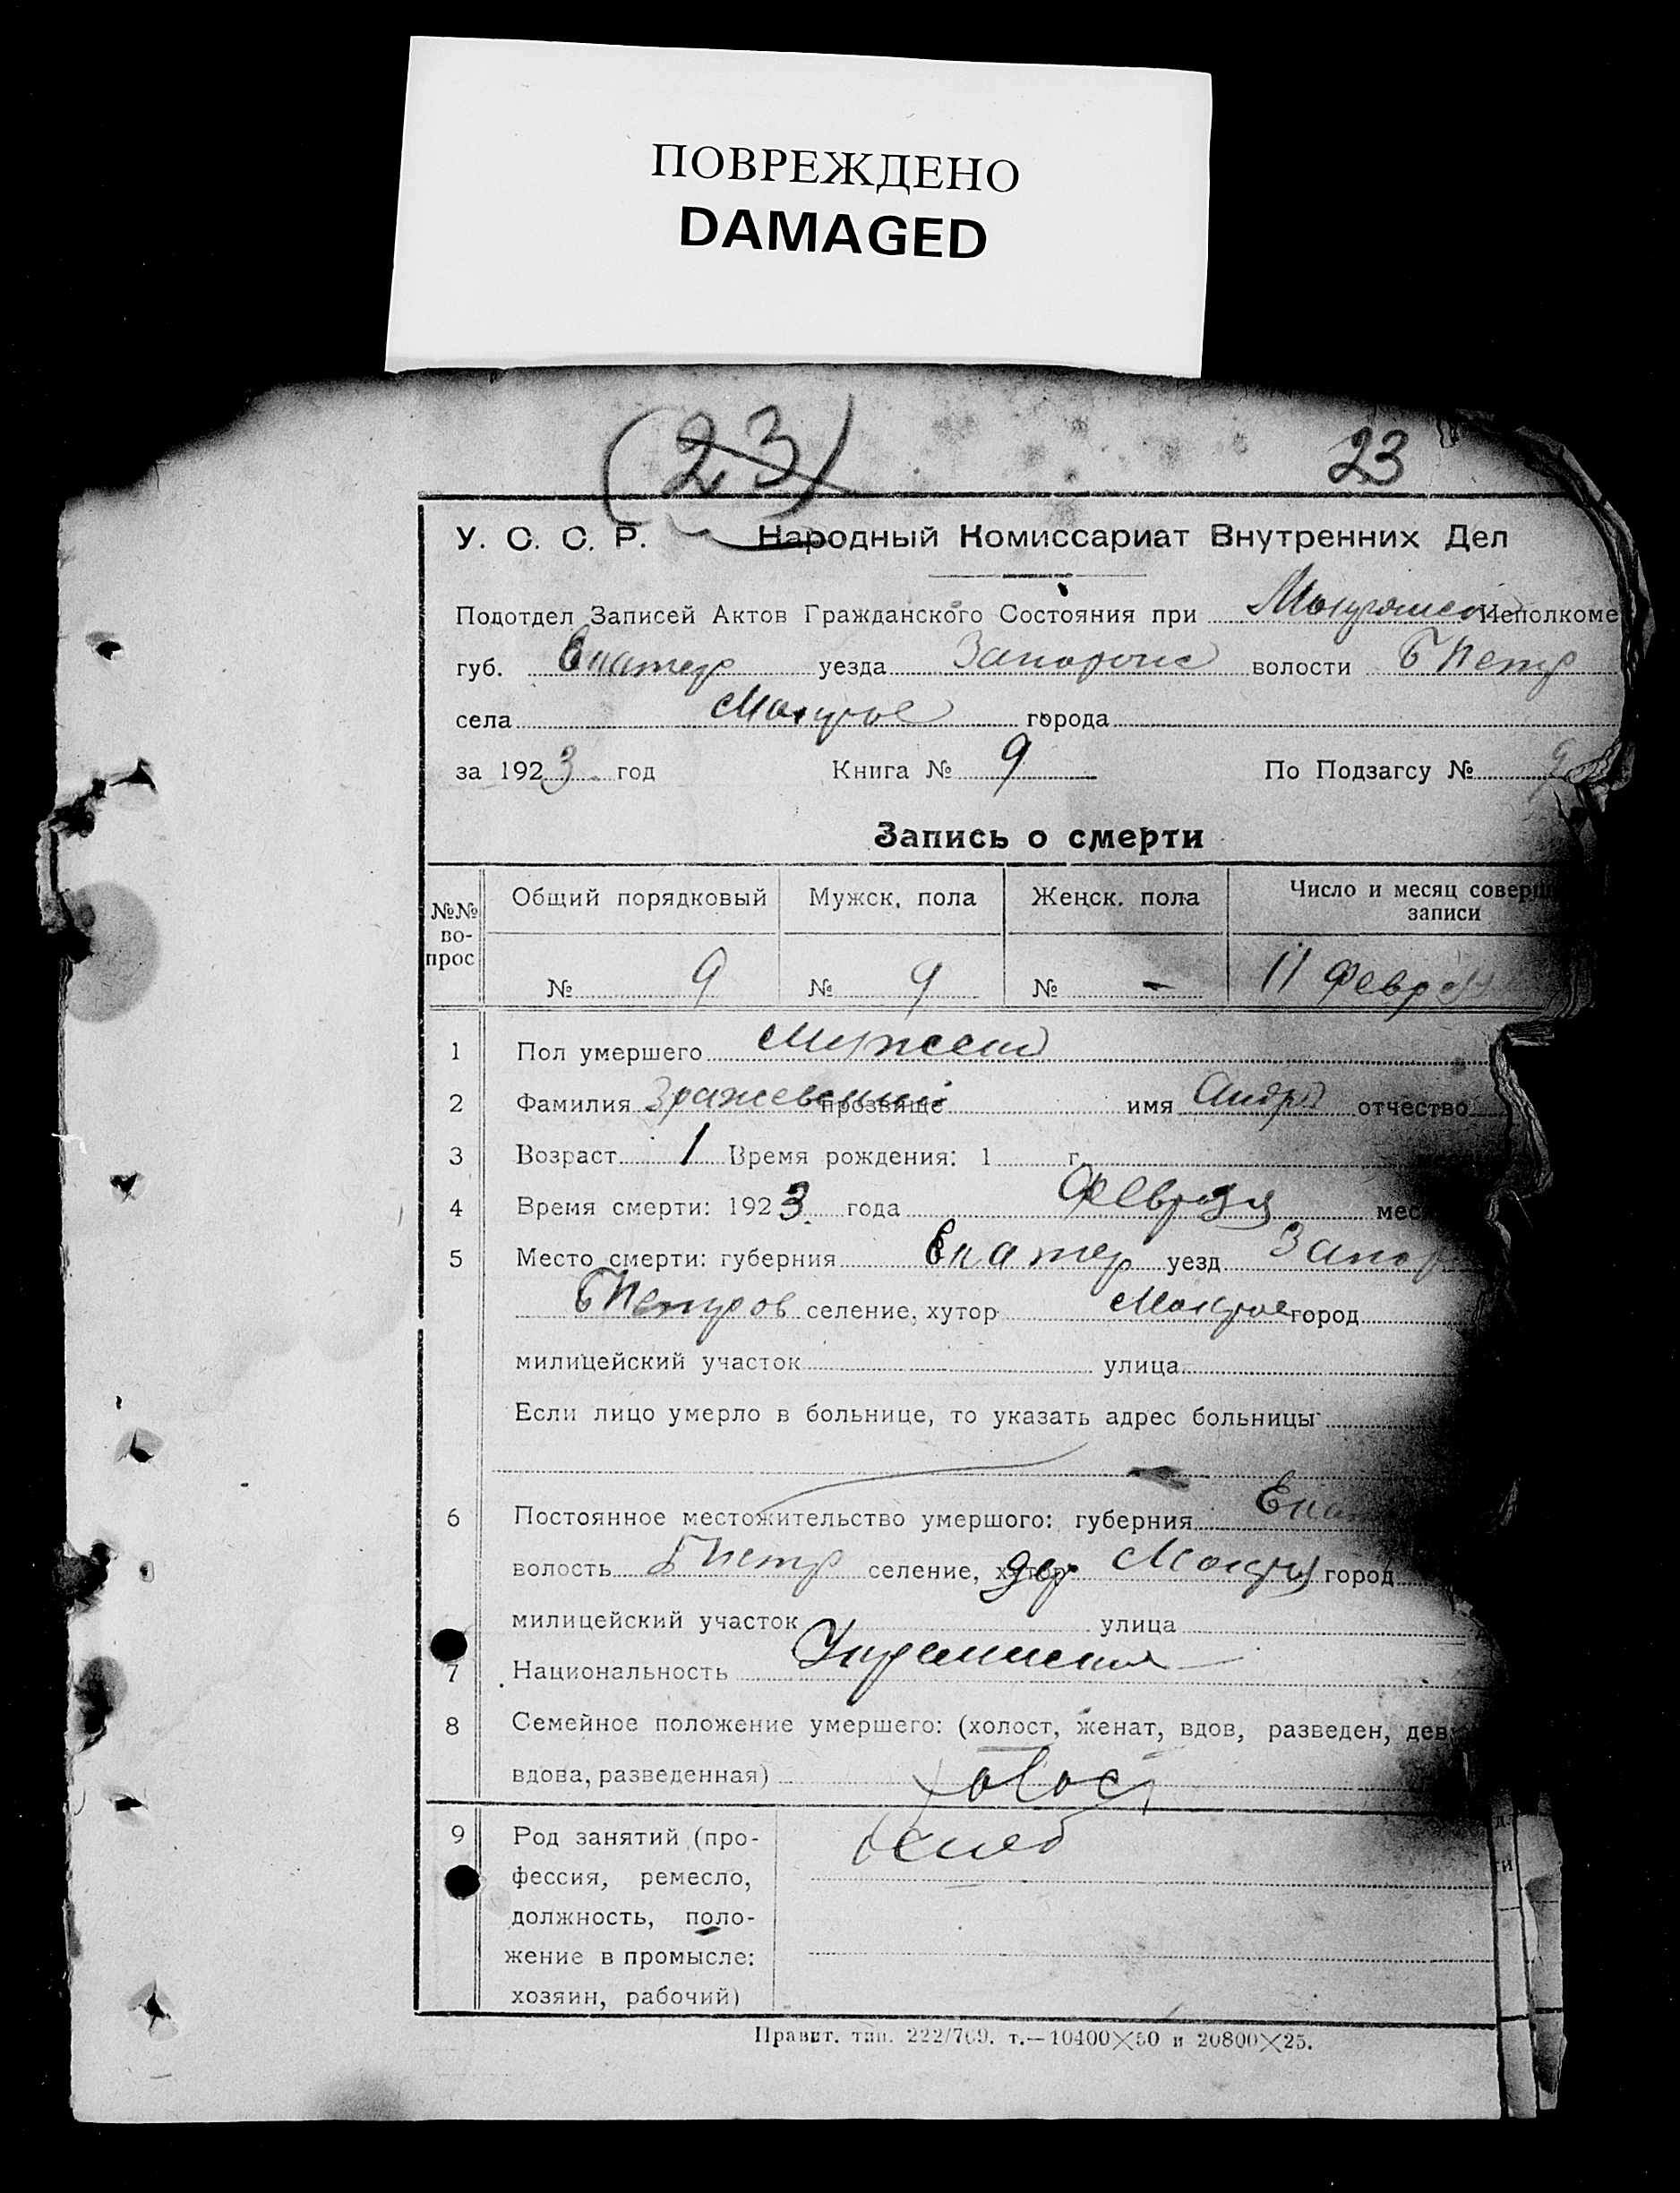 ПОВРЕЖДЕНО
DAMAGED
(23) 23
У. С. С. Р. Народный Комиссариат Внутренних Дел
Подотдел Записей Актов Гражданского Состояния при Исполкоме
губ. Екатер уезда Запорож волости Б Петр
села Мокрое города
за 1923 год Книга № 9 По Подзагсу № 9
Запись о смерти
№№ во-прос Общий порядковый Мужск. пола Женск. пола Число и месяц соверш
записи
№ 9 № 9 № - 11 Февр
1 Пол умершего Мужской
2 Фамилия Зражевский прозвище имя Андр отчество
3 Возраст 1 Время рождения: 1 г.
4 Время смерти: 1923 года Февраля мес
5 Место смерти: губерния Екатер уезд Запор
Б Петров селение, хутор Мокрое город
милицейский участок улица
Если лицо умерло в больнице, то указать адрес больницы
6 Постоянное местожительство умершого: губерния Екат
волость Б Петр селение, хутор дер Мокрая город
милицейский участок улица
7 Национальность
8 Семейное положение умершего: (холост, женат, вдов, разведен, дев
вдова, разведенная) холост
9 Род занятий (про-
фессия, ремесло,
должность, поло-
жение в промысле:
хозяин, рабочий)
Правит. тип. 222/709. т.—10400×50 и 20800×25.